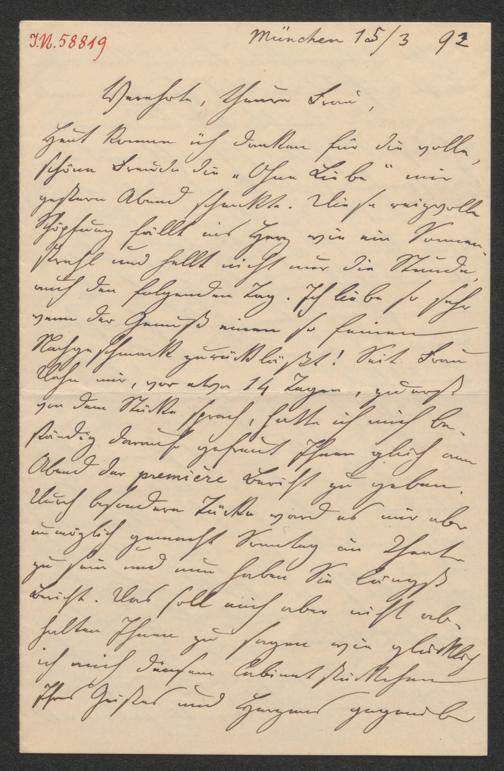 I.N. 58819
München 15/3 92
Verehrte, theure Frau,
Heut komm ich danken für die volle,
schöne Freude die „Ohne Liebe“ mir
gestern Abend schenkte. Diese reizvolle
Schöpfung fällt ins Herz wie ein Sonnen-
strahl und hellt nicht nur die Stunde,
auch den folgenden Tag. Ich liebe so sehr
wenn der Genuß einen so feinen
Nachgeschmack zurückläßt! Seit Frau
mir, vor etwa 14 Tagen, zuerst
von dem Stücke sprach, hatte ich mich be-
ständig darauf gefreut Ihnen gleich am
Abend der première Bericht zu geben.
Durch besondere Tücke ward es mir aber
unmöglich gemacht Sonntag im Theater
zu sein und nun haben Sie längst
Bericht. Das soll mich aber nicht ab-
halten Ihnen zu sagen wie glücklich
ich mich diesem Cabinetstückchen
Ihres Geistes und Herzens gegenüber